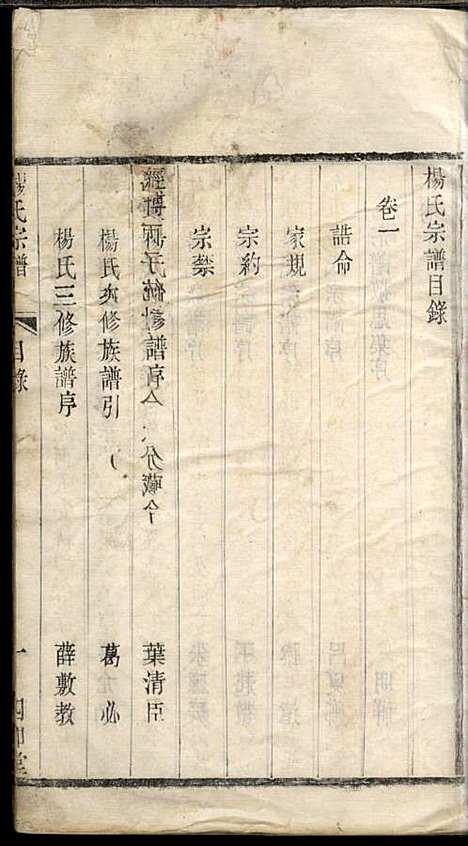 楊氏宗譜目錄
卷一
誥命
家規
宗約
宗禁
譜序 葉清臣
楊氏次修族譜引 葛必
楊氏三修族譜序 薛敷教
楊氏宗譜 目錄 一 四知堂